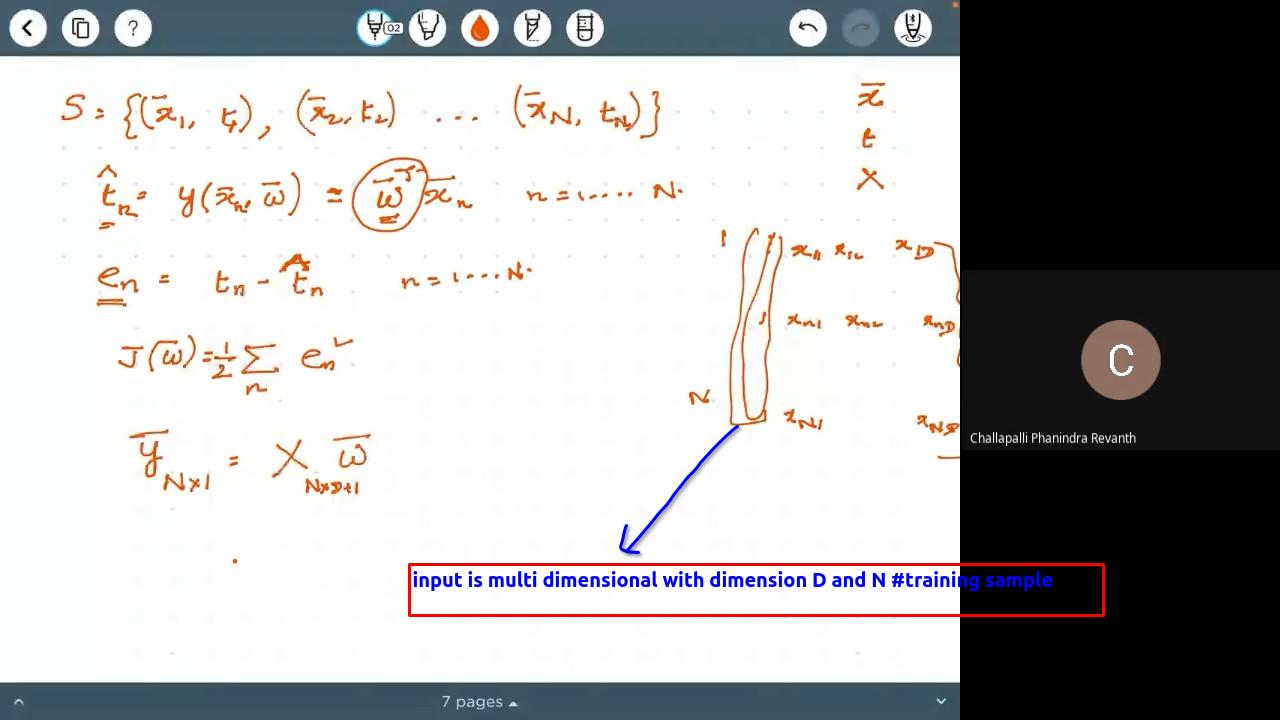 02
S = {(x̄₁, t₁), (x̄₂, t₂) ... (x̄_N, t_N)}
x̄
t
X
t̂ₙ = y(x̄ₙ, w̄) ≈ w̄ᵀ x̄ₙ n = 1.... N.
eₙ = tₙ - t̂ₙ n = 1...N.
1 x₁₁ x₁₂ x₁D
1 xₙ₁ xₙ₂ xₙD
N x_N1 x_ND
J(w̄) = 1/2 Σₙ eₙ²
ȳ N×1 = X N×D+1 w̄
input is multi dimensional with dimension D and N #training sample
C
Challapalli Phanindra Revanth
7 pages